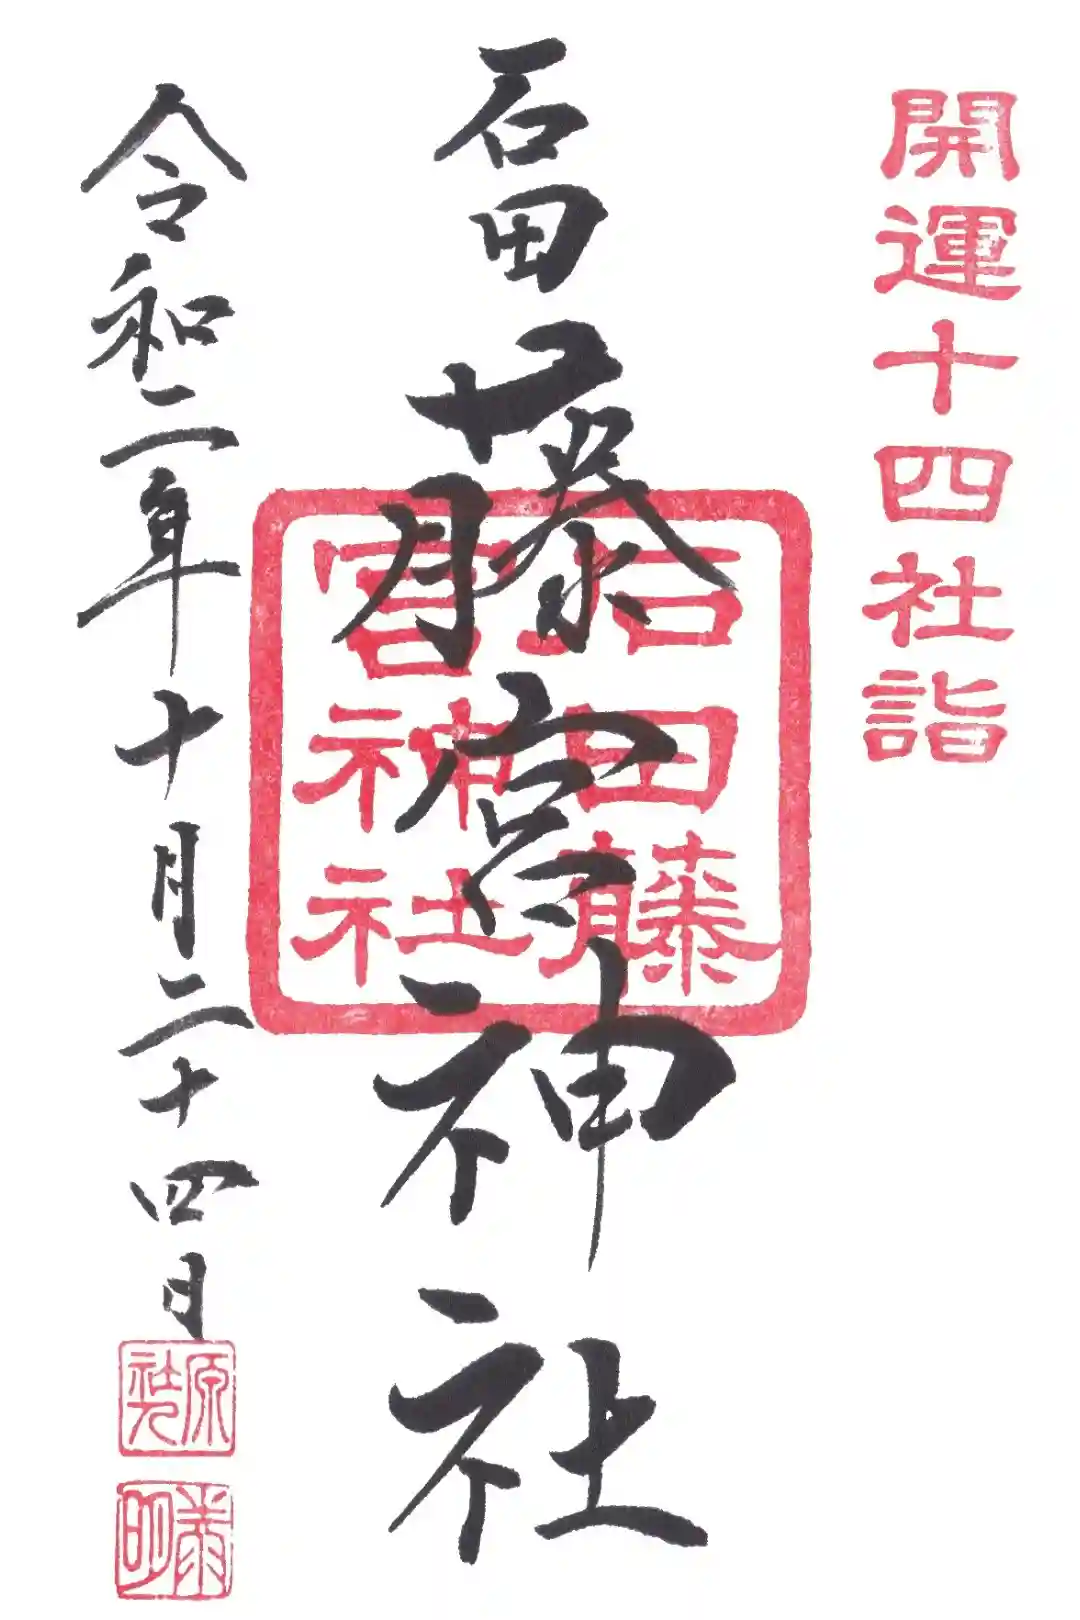 開運十四社詣
石田藤宮神社
石田藤
宮神社
令和二年十月二十四日